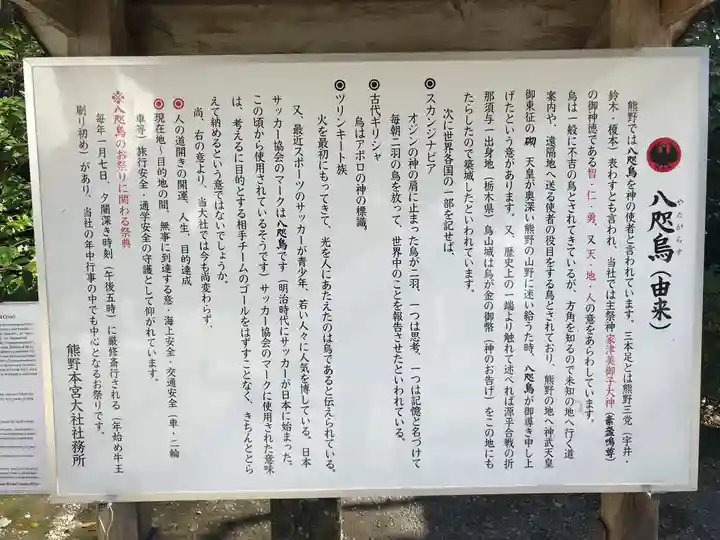 八咫烏（由来）
やたがらす
熊野では八咫烏を神の使者と言われています。三本足とは熊野三党（宇井・
鈴木・榎本）表わすとも言われ、当社では主祭神家津美御子大神（素盞鳴尊）
の御神徳である智・仁・勇、又天・地・人の意をあらわしています。
烏は一般に不吉の鳥とされてきているが、方角を知るので未知の地へ行く道
案内や、遠隔地へ送る使者の役目をする鳥とされており、熊野の地へ神武天皇
御東征の砌、天皇が奥深い熊野の山野に迷い給うた時、八咫烏が御導き申し上
げたという意があります。又、歴史上の一端より触れて述べれば源平合戦の折
那須与一出身地（栃木県）烏山城は烏が金の御幣（神のお告げ）をこの地にも
たらしたので築城したといわれています。
次に世界各国の一部を記せば、
◉スカンジナビア
オジンの神の肩に止まった烏が二羽、一つは思考、一つは記憶と名づけて
毎朝二羽の烏を放って、世界中のことを報告させたといわれている。
◉古代ギリシャ
烏はアポロの神の標識。
◉ツリンキート族
火を最初にもってきて、光を人にあたえたのは烏であると伝えられている。
又、最近スポーツのサッカーが青少年、若い人々に人気を博している。日本
サッカー協会のマークは八咫烏です（明治時代にサッカーが日本に始まった。
この頃から使用されているそうです）サッカー協会のマークに使用された意味
は、考えるに目的とする相手チームのゴールをはずすことなく、きちんととら
えて納めるという意ではないでしょうか。
尚、右の意より、当大社では今も尚変わらず、
◉人の道開きの開運、人生、目的達成
◉現在地・目的地の間、無事に到達する意・海上安全・交通安全（車・二輪
車等）旅行安全・通学安全の守護として仰がれています。
※八咫烏のお祭りに関わる祭典
毎年一月七日、夕闇深き時刻（午後五時）に厳修斎行される（年始め牛王
刷り初め）があり、当社の年中行事の中でも中心となるお祭りです。
熊野本宮大社社務所